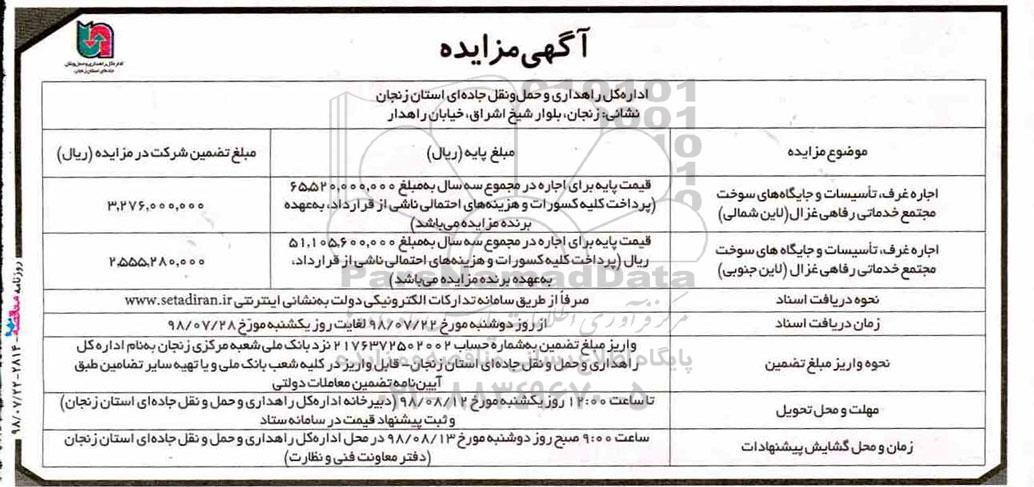 آگهی مزایده
اداره کل راهداری و حمل و نقل
جاده‌ای استان زنجان
اداره‌کل راهداری و حمل‌ونقل جاده‌ای استان زنجان
نشانی: زنجان، بلوار شیخ اشراق، خیابان راهدار
موضوع مزایده
مبلغ پایه (ریال)
مبلغ تضمین شرکت در مزایده (ریال)
اجاره غرف، تأسیسات و جایگاه‌های سوخت
مجتمع خدماتی رفاهی غزال (لاین شمالی)
قیمت پایه برای اجاره در مجموع سه سال به‌مبلغ ۶۵,۵۲۰,۰۰۰,۰۰۰
(پرداخت کلیه کسورات و هزینه‌های احتمالی ناشی از قرارداد، به‌عهده
برنده مزایده می‌باشد)
۳,۲۷۶,۰۰۰,۰۰۰
اجاره غرف، تأسیسات و جایگاه های سوخت
مجتمع خدماتی رفاهی غزال (لاین جنوبی)
قیمت پایه برای اجاره در مجموع سه سال به‌مبلغ ۵۱,۱۰۵,۶۰۰,۰۰۰
ریال (پرداخت کلیه کسورات و هزینه‌های احتمالی ناشی از قرارداد،
به‌عهده برنده مزایده می‌باشد)
۲,۵۵۵,۲۸۰,۰۰۰
نحوه دریافت اسناد
صرفاً از طریق سامانه تدارکات الکترونیکی دولت به‌نشانی اینترنتی www.setadiran.ir
زمان دریافت اسناد
از روز دوشنبه مورخ ۹۸/۰۷/۲۲ لغایت روز یکشنبه مورخ ۹۸/۰۷/۲۸
نحوه واریز مبلغ تضمین
واریز مبلغ تضمین به‌شماره حساب ۲۱۷۶۳۷۲۵۰۲۰۰۲ نزد بانک ملی شعبه مرکزی زنجان به‌نام اداره کل
راهداری و حمل و نقل جاده‌ای استان زنجان– قابل واریز در کلیه شعب بانک ملی و یا تهیه سایر تضامین طبق
آیین‌نامه تضمین معاملات دولتی
مهلت و محل تحویل
تا ساعت ۱۲:۰۰ روز یکشنبه مورخ ۹۸/۰۸/۱۲ (دبیرخانه اداره‌کل راهداری و حمل و نقل جاده‌ای استان زنجان)
و ثبت پیشنهاد قیمت در سامانه ستاد
زمان و محل گشایش پیشنهادات
ساعت ۹:۰۰ صبح روز دوشنبه مورخ ۹۸/۰۸/۱۳ در محل اداره‌کل راهداری و حمل و نقل جاده‌ای استان زنجان
(دفتر معاونت فنی و نظارت)
روزنامه مناقصه ۲۸۱۴-۹۸/۰۷/۲۲
ParsNamadData
پایگاه اطلاع رسانی مناقصه و مزایده
۰۲۱-۸۸۳۴۹۶۷۰-۵